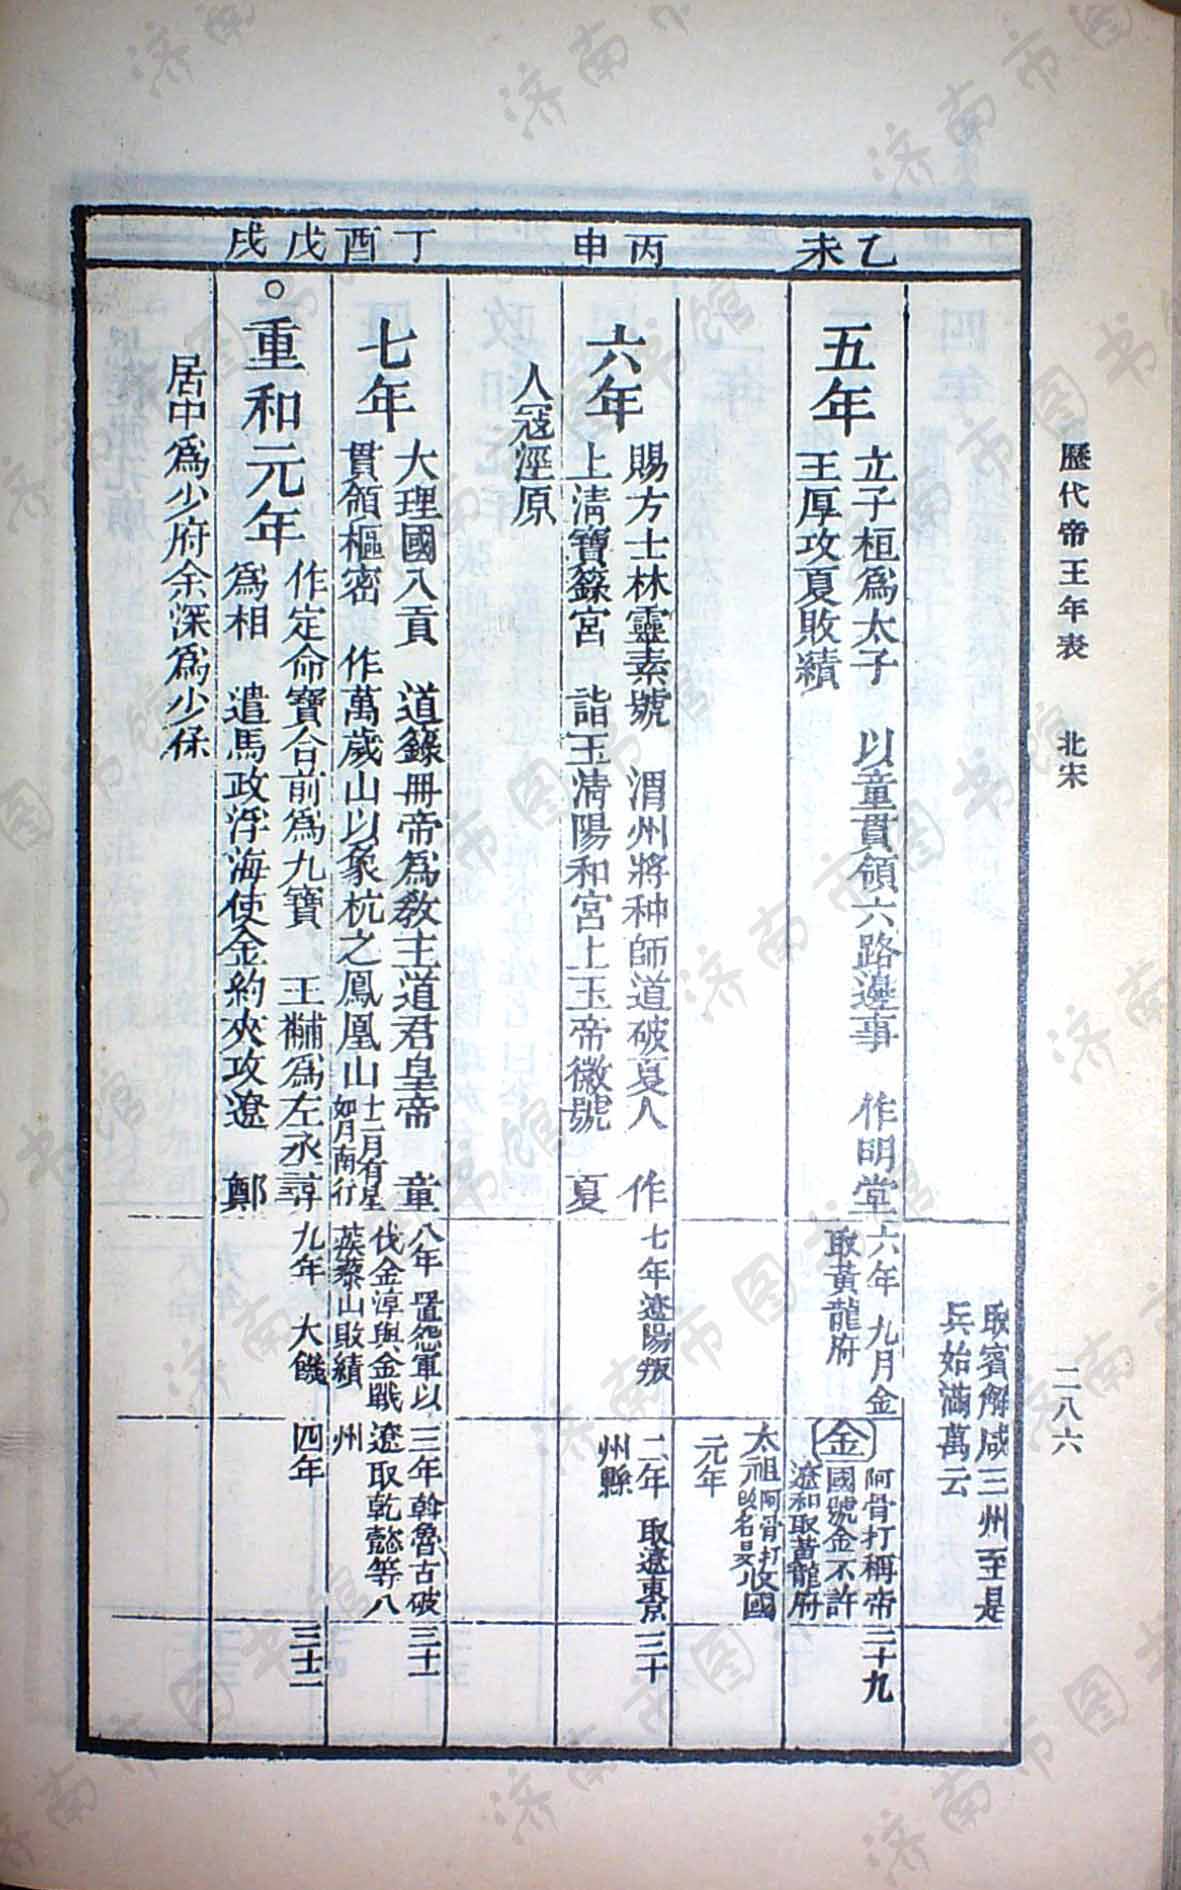 歷代帝王年表　北宋　二八六
乙未
丙申
丁酉
戊戌
取賓解咸三州至是
兵始滿萬云
五年
立子桓爲太子　以童貫領六路邊事　作明堂
王厚攻夏敗績
六年　九月金
取黃龍府
金
阿骨打稱帝
國號金不許
遼和取黃龍府
二十九
太祖阿骨打收國
元改名旻
元年
六年
賜方士林靈素號　渭州將种師道破夏人　作
上淸寶籙宮　詣玉淸陽和宮上玉帝徽號　夏
人寇涇原
七年遼陽叛
二年　取遼東京
州縣
三十
七年
大理國入貢　道籙冊帝爲敎主道君皇帝　童
貫領樞密　作萬歲山以象杭之鳳凰山
十二月有星
如月南行
八年　置怨軍以
伐金淳與金戰
蒺藜山敗績
三年斡魯古破
遼取乾懿等八
州
三十一
○重和元年
作定命寶合前爲九寶　王黼爲左丞尋
爲相　遣馬政浮海使金約夾攻遼　鄭
居中爲少府余深爲少保
九年　大饑
四年
三十二